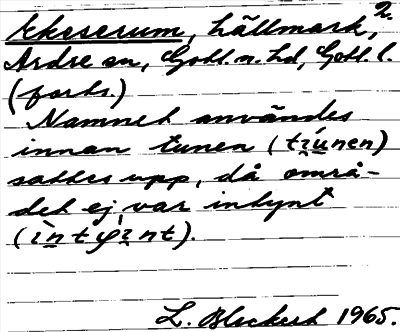 Ekeserum, hällmark, 2.
Ardre sn, Gotl. n. hd, Gotl. l.
(forts.)
Namnet användes
innan tunen (tiunen)
sattes upp, då områ-
det ej var intynt
(intynt).
1965.